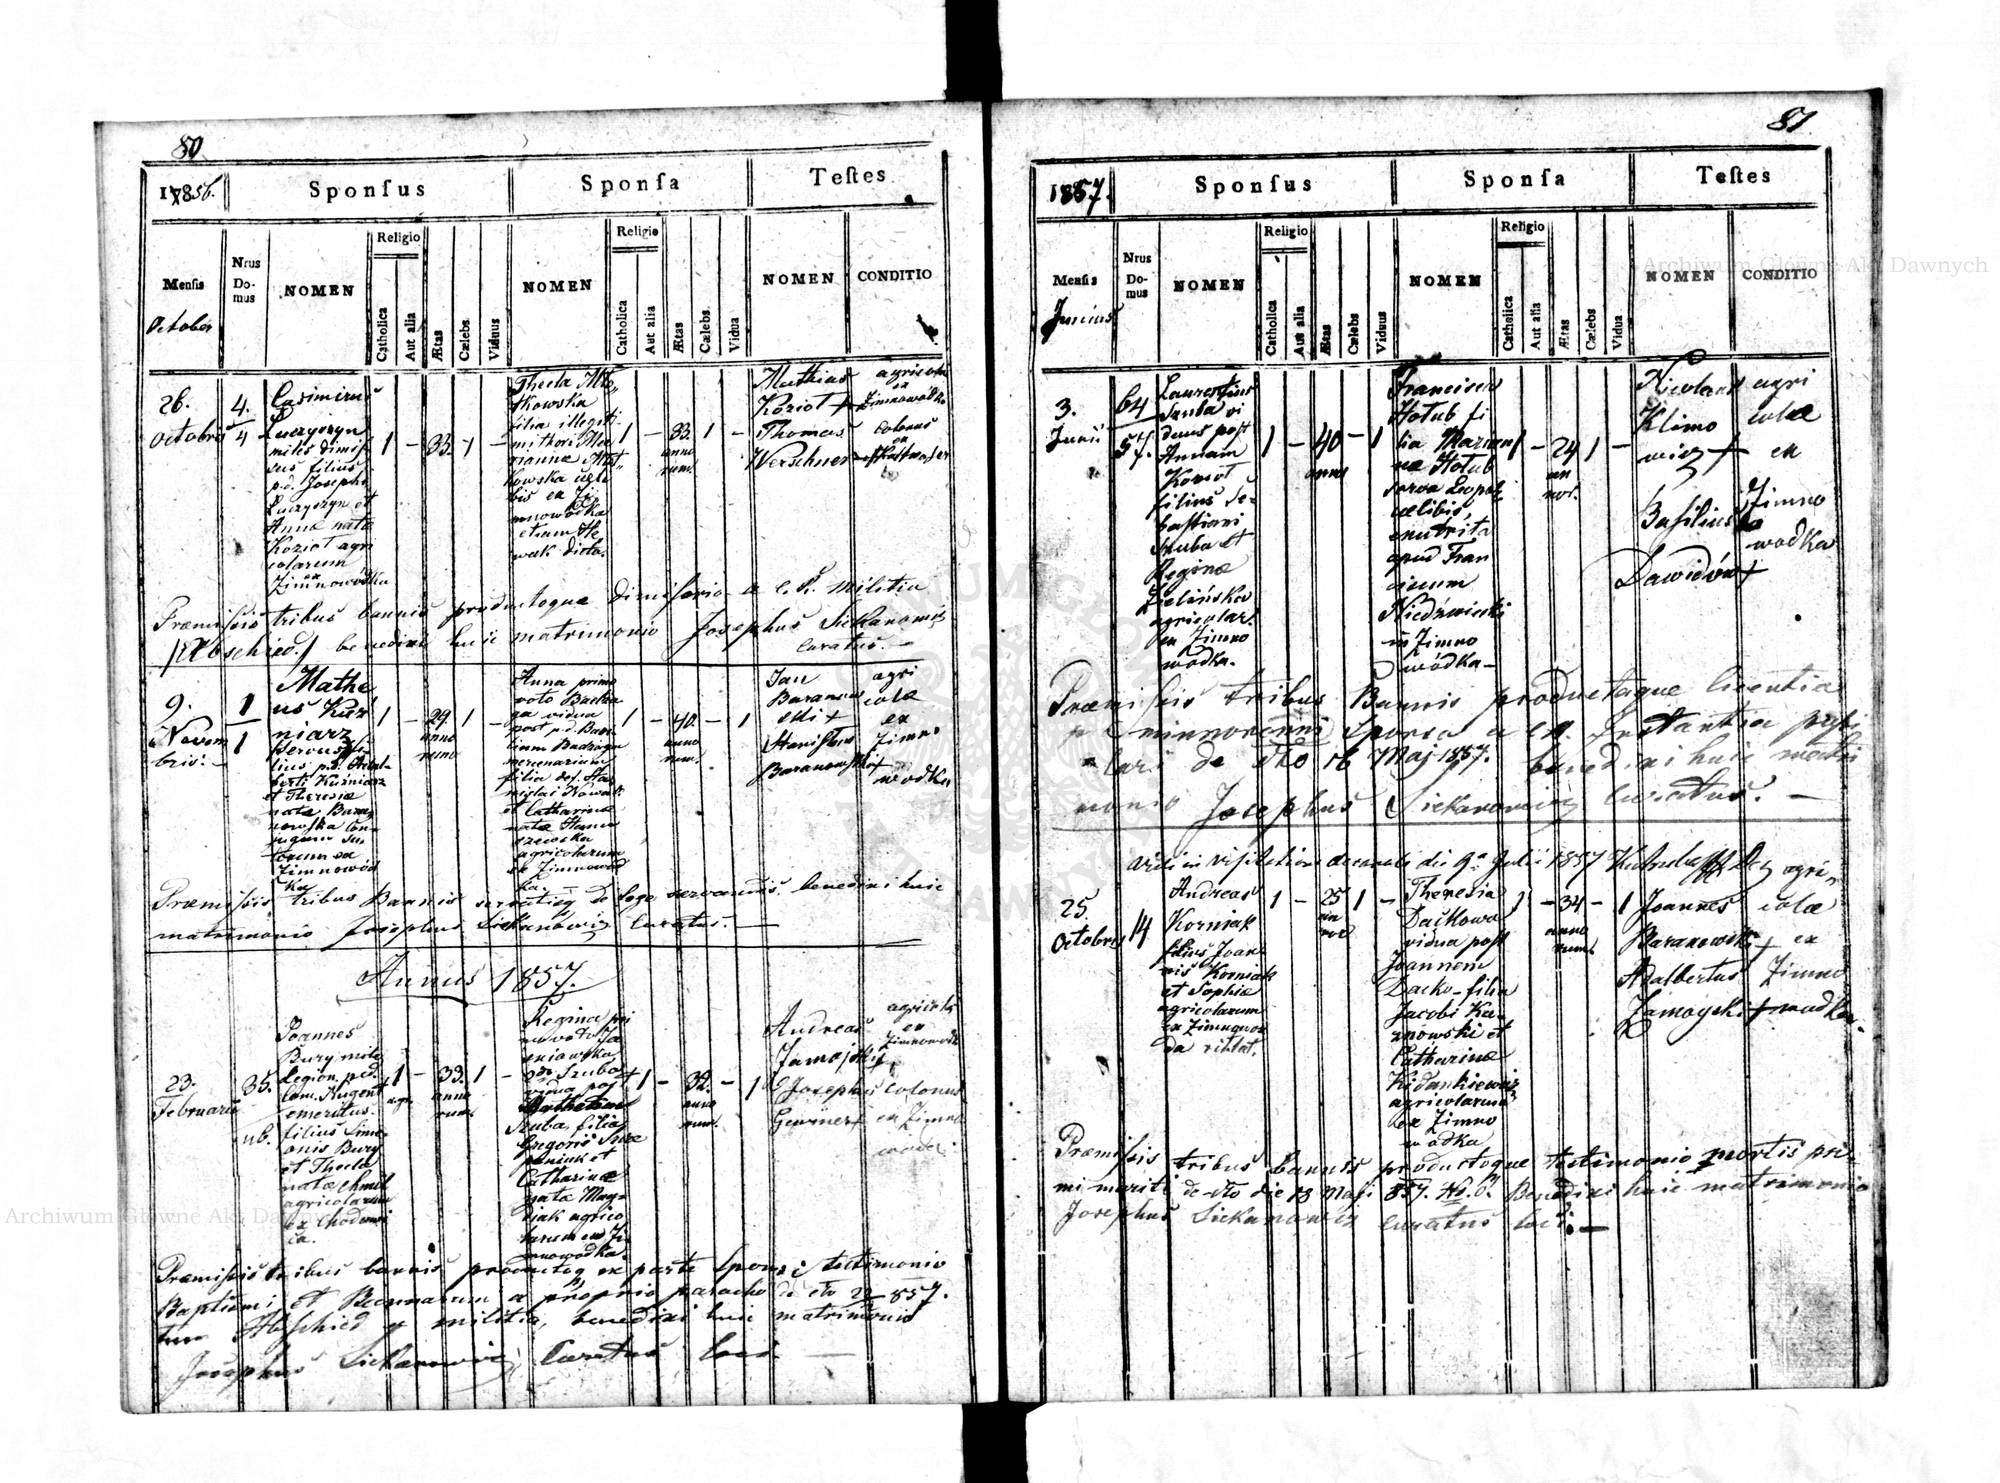 80
1856.
Sponsus
Sponsa
Testes
Mensis
October
Nrus
Do-
mus
NOMEN
Religio
Catholica
Aut alia
Ætas
Cælebs
Viduus
NOMEN
Religio
Catholica
Aut alia
Ætas
Cælebs
Vidua
NOMEN
CONDITIO
26.
Octobris
4.
4
Casimirus
Luczyczyn
miles dimis
sus filius
p.d. Josephi
Luczyczyn et
Annæ natæ
Kozioł agri
colarum
ex
Zimnowódka
1 – 33. 1 –
Thecla
kowska
filia illegiti
mi thori Ma
rianna
kowska cæli
bis ex Zi
mnowodka
etiam
wak dicta.
1 – 33. 1 –
anno
rum.
Mathias
Kozioł +
Thomas
Werschner
agricola
ex
Zimnowodka
colonus
ex
Præmissis tribus bannis productoque dimissorio a c. r. militia
/Abschied./ benedixi huic matrimonio Josephus Siekanowicz
curatus. –
9.
Novem
bris. –
1
1
Mathe
us Kuś
niarz
servus fi
lius p.d. Adal
berti Kuśniarz
et Theresiæ
natæ Bara
nowska con
jugum
ex
Zimnowód
ka
1 – 29. 1 –
anno
rum
Anna primo
voto
vidua
post p.d. Basi
lium
mercenarium
filia def. Sta
nislai Nowak
et Catharinæ
natæ
agricolarum
ex Zimnowód
ka. –
1 – 40. – 1
anno
rum.
Jan
Baranow
ski +
Stanislaus
Baranowski +
agri
colæ
ex
Zimno
wodka
Præmissis tribus Bannis servatisq de lege servandis benedixi huic
matrimonio Josephus Siekanowicz Curatus. –
Annus 1857.
23.
Februarii
35.
ub.
Joannes
Bury mile
Legion. ped.
Com. Nugent
emeritus.
filius Sime
onis Bury
et Thecla
natæ Chmil
agricolarum
ex Chodowi
ca.
1 – 33. 1 –
anno
rum.
Regina pri
mo voto
2do Szuba
vidua post
Szuba, filia
Gregorii
et
Catharinæ
natæ
agrico
larum ex Zi
mnowodka.
1 – 32. – 1
anno
rum.
Andreas
Zamojski +
Josephus
agricola
ex
Zimnowodk
colonus
ex Zimno
wodki
Præmissis tribus bannis productoq ex parte sponsi testimonio
Baptismi et Bannarum a proprio parocho de dto 22 857.
tum Abschied a militia, benedixi huic matrimonio
Josephus Siekanowicz Curatus loci –
81
1857.
Sponsus
Sponsa
Testes
Mensis
Junius
Nrus
Do-
mus
NOMEN
Religio
Catholica
Aut alia
Ætas
Cælebs
Viduus
NOMEN
Religio
Catholica
Aut alia
Ætas
Cælebs
Vidua
NOMEN
CONDITIO
3.
Junii
64
57.
Laurentius
Szuba vi
duus post
Annam
Kozioł
filius Se
bastiani
Szuba et
Reginæ
Zielińska
agricolar.
ex Zimno
wodka.
1 – 40 – 1
annor
Francisca
Hołub fi
lia Marian
næ Hołub
serva Leopol
cælibis,
enutrita
apud Fran
ciscum
Niedzwiecki
in Zimno
wódka –
1 – 24 1 –
an
nor.
Nicolaus
Klimo
wicz +
Basilius
Dawidów +
agri
colæ
ex
Zimno
wodka
Præmissis tribus Bannis productaque licentia
p minorenni Sponsa a c. r. Instantia
lari de dto 16 Maj 1857. benedixi huic matri
monio Josephus Siekanowicz Curatus. –
Vidi in visitatione decanali die 9a Julii 1857
25.
Octobris
14
Andreas
Korniak
filius Joan
nis Korniak
et Sophiæ
agricolarum
ex Zimnawo
da
1 – 25 1 –
an
nor
Theresia
Daćkowa
vidua post
Joannem
Dacko – filia
Jacobi Ka
znowski et
Catharinæ
agricolarum
ex Zimno
wódka
1 – 34 – 1
anno
rum.
Joannes
Baranowski +
Adalbertus
Zamoyski +
agri
colæ
ex
Zimno
wodka.
Præmissis tribus bannis productoque testimonio mortis pri
mi mariti de dto die 13 Maji 857. No. 6. Benedixi huic matrimonio
Josephus Siekanowicz curatus loci. –
Archiwum Główne Akt Dawnych
Archiwum Główne Akt Dawnych